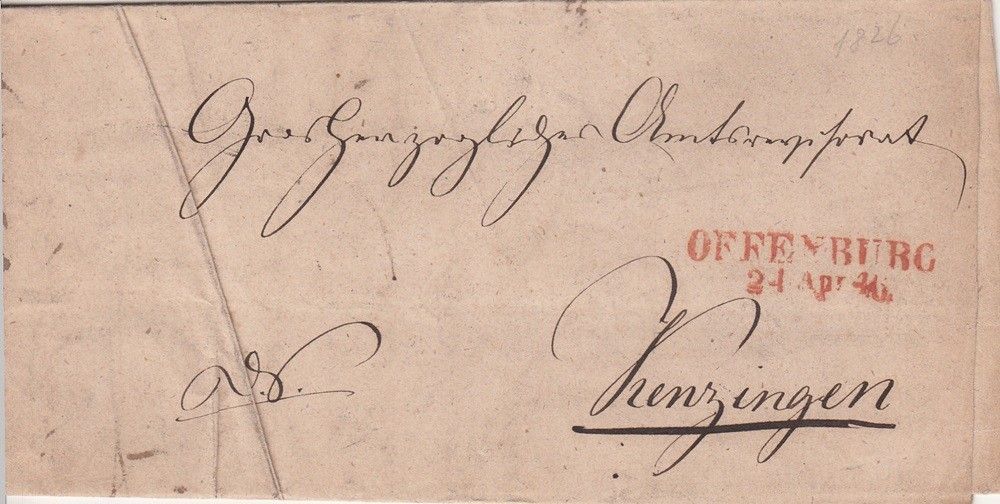 1826
Grosherzogliches Amtsrevisorat
OFFENBURG
24 Apr 46.
D.S.
Kenzingen